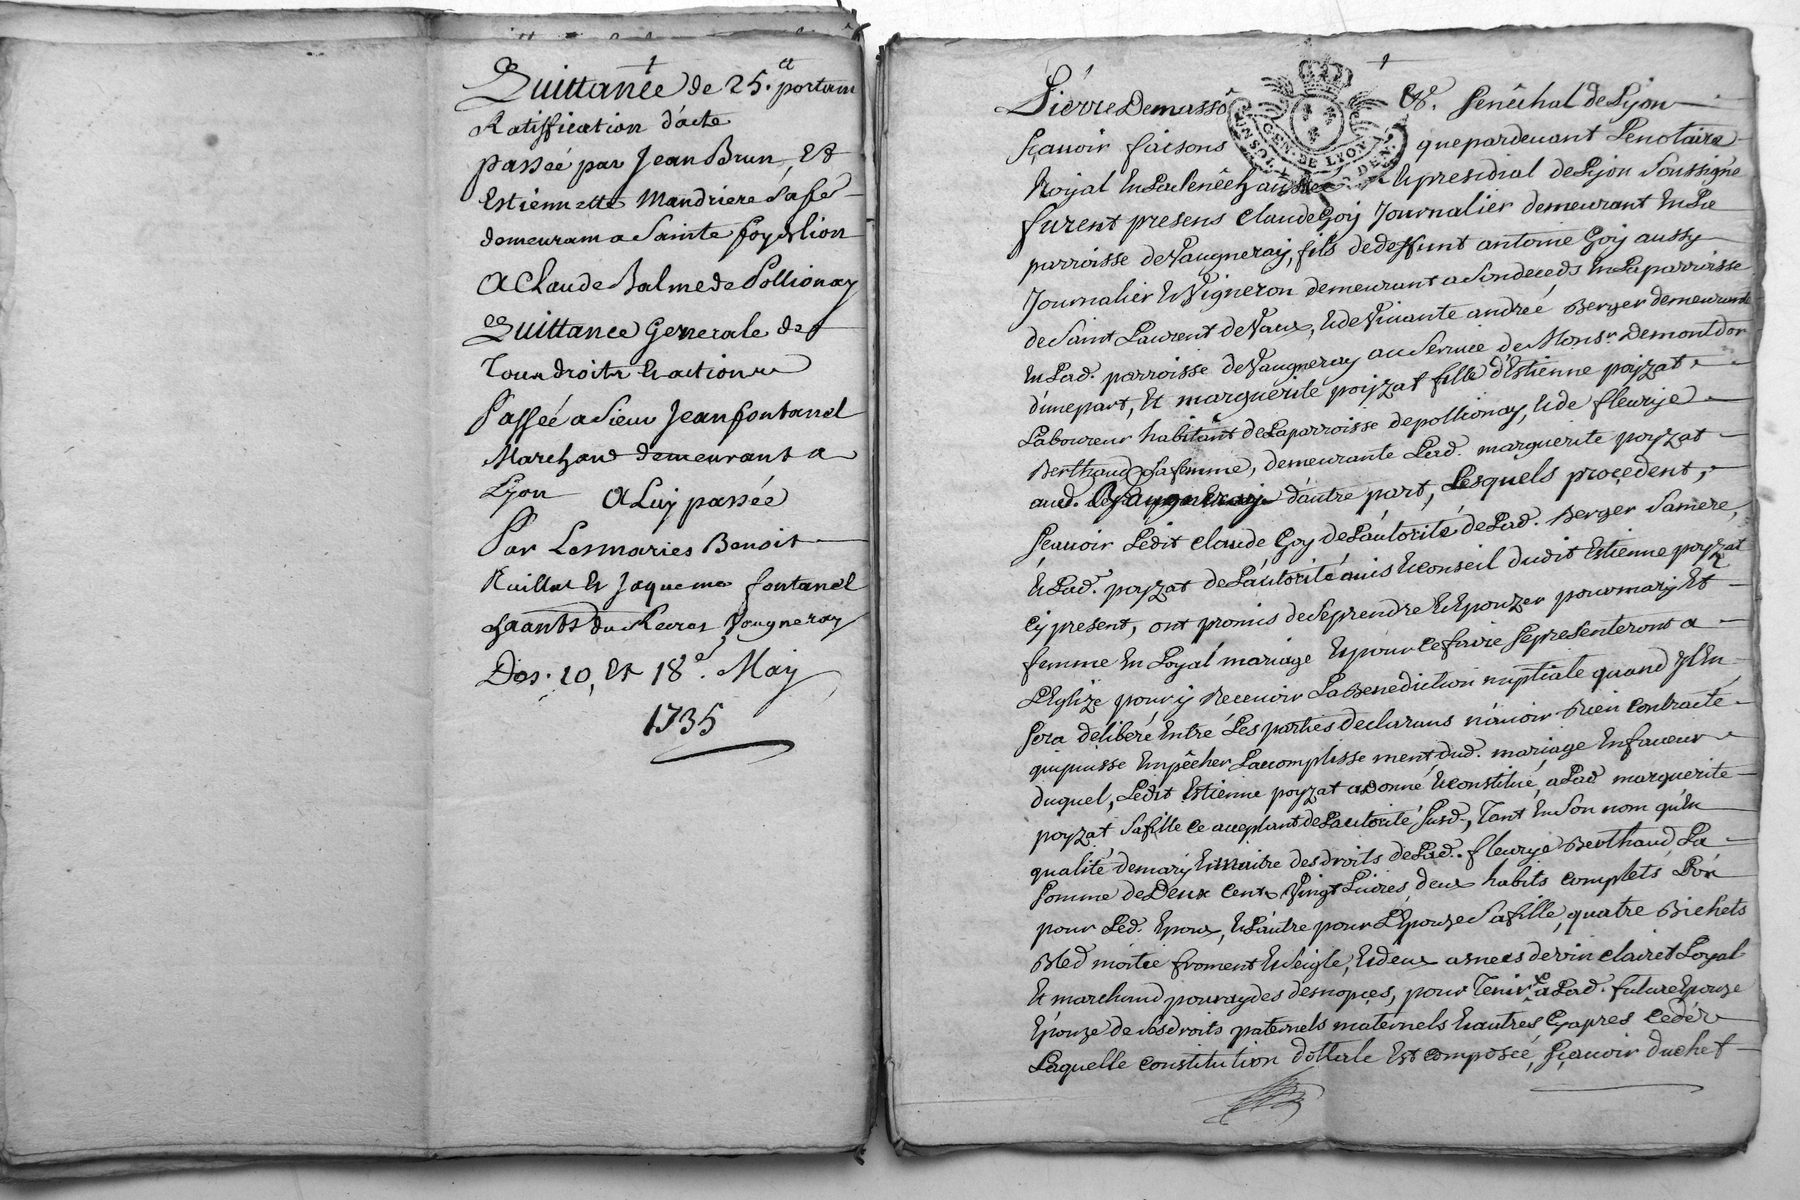 Quittance de 25.ᵗᵗ portam
Ratiffication d'acte
passée par Jean Brun, Et
Estiennette Mandriere Sa fe
demeuram a Sainte foy
A Claude Balme de Pollionay
Quittance Generale de
Tous droits Et actions
Passée a Sieur Jean fontanel
Marchand demeurant a
Lyon A Luy passée
Par Les maries Benoit
Ruillat Et Jaqueme fontanel
du Vaugneray
Des. 10, Et 18ᵉ. May
1735
Pierre Demasso Senêchal de Lyon
Sçavoir faisons que pardevant Le notaire
Royal En La Senêchaussée Et presidial de Lyon Soussigné
furent presens Claude Goy Journalier demeurant En La
parroisse de Vaugneray, fils de deffunt antoine Goy aussy
Journalier Et Vigneron demeurant a Son deceds En La parroisse
de Saint Laurent de Vaux, Et de Vivante andreé Berger demeurante
En Lad. parroisse de Vaugneray au Service de Monsr. Demontdor
d'une part, Et marguerite poyzat fille d'Estienne poyzat
Laboureur habitant de La parroisse de pollionay, Et de fleurye
Berthaud Sa femme, demeurante Lad. marguerite poyzat
aud. Vaugneray d'autre part, Lesquels procedent,
Scavoir Ledit Claude Goy de L'autorité de Lad. Berger Sa mere,
Et Lad. poyzat de L'autorité avis Et conseil dudit Estienne poyzat
cy present, ont promis de Se prendre Et Epouzer pour mary Et
femme En Loyal mariage Et pour ce faire Se presenteront a
L'Eglize pour y Recevoir La Benediction nuptiale quand Il En
Sera déliberé Entre Les parties declarans n'avoir Rien contracté
qui puisse Empêcher L'accomplissement dud. mariage En faveur
duquel, Ledit Estienne poyzat a donné Et constitué, a Lad marguerite
poyzat Sa fille ce acceptant de L'autorité Susd., Tant En Son nom qu'En
qualité de mary Et maitre des droits de Lad. fleurye Berthaud La
Somme de Deux cents Vingt Livres deux habits complets L'un
pour Led. Epoux, Et L'autre pour L'Epouze Sa fille, quatre Bichets
Bled moitié froment Et Seigle, Et deux asnees de vin clairet Loyal
Et marchand pour aydes des nopces, pour Tenir a Lad. future Epouze
Epouze de Ses droits paternels maternels Et autres cy apres cedés
Laquelle constitution dottale Est composée, Sçavoir du chef